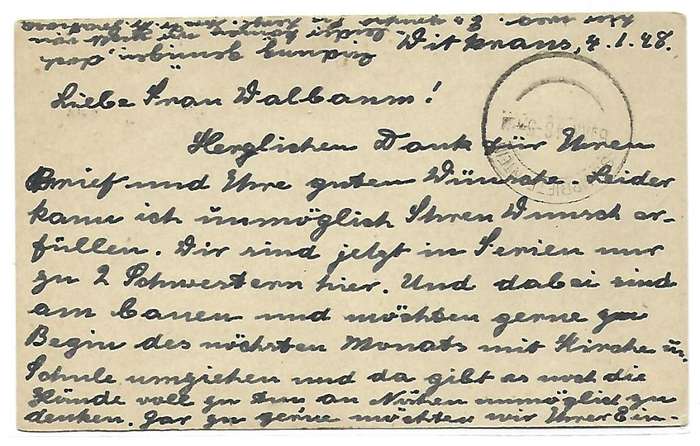 Witkrans, 4.1.48.
Liebe Frau Walbaum!
Herzlichen Dank für Ihren
Brief und Ihre guten Wünsche. Leider
kann ich unmöglich Ihren Wunsch er-
füllen. Wir sind jetzt in Ferien nur
zu 2 Schwestern hier. Und dabei sind
am bauen und möchten gerne zu
Begin des nächsten Monats mit Kirche u.
Schule umziehen und da gibt es noch die
Hände voll zu tun an Nähen unmöglich zu
denken. Gar zu gerne möchten wir Ihrer Ein-